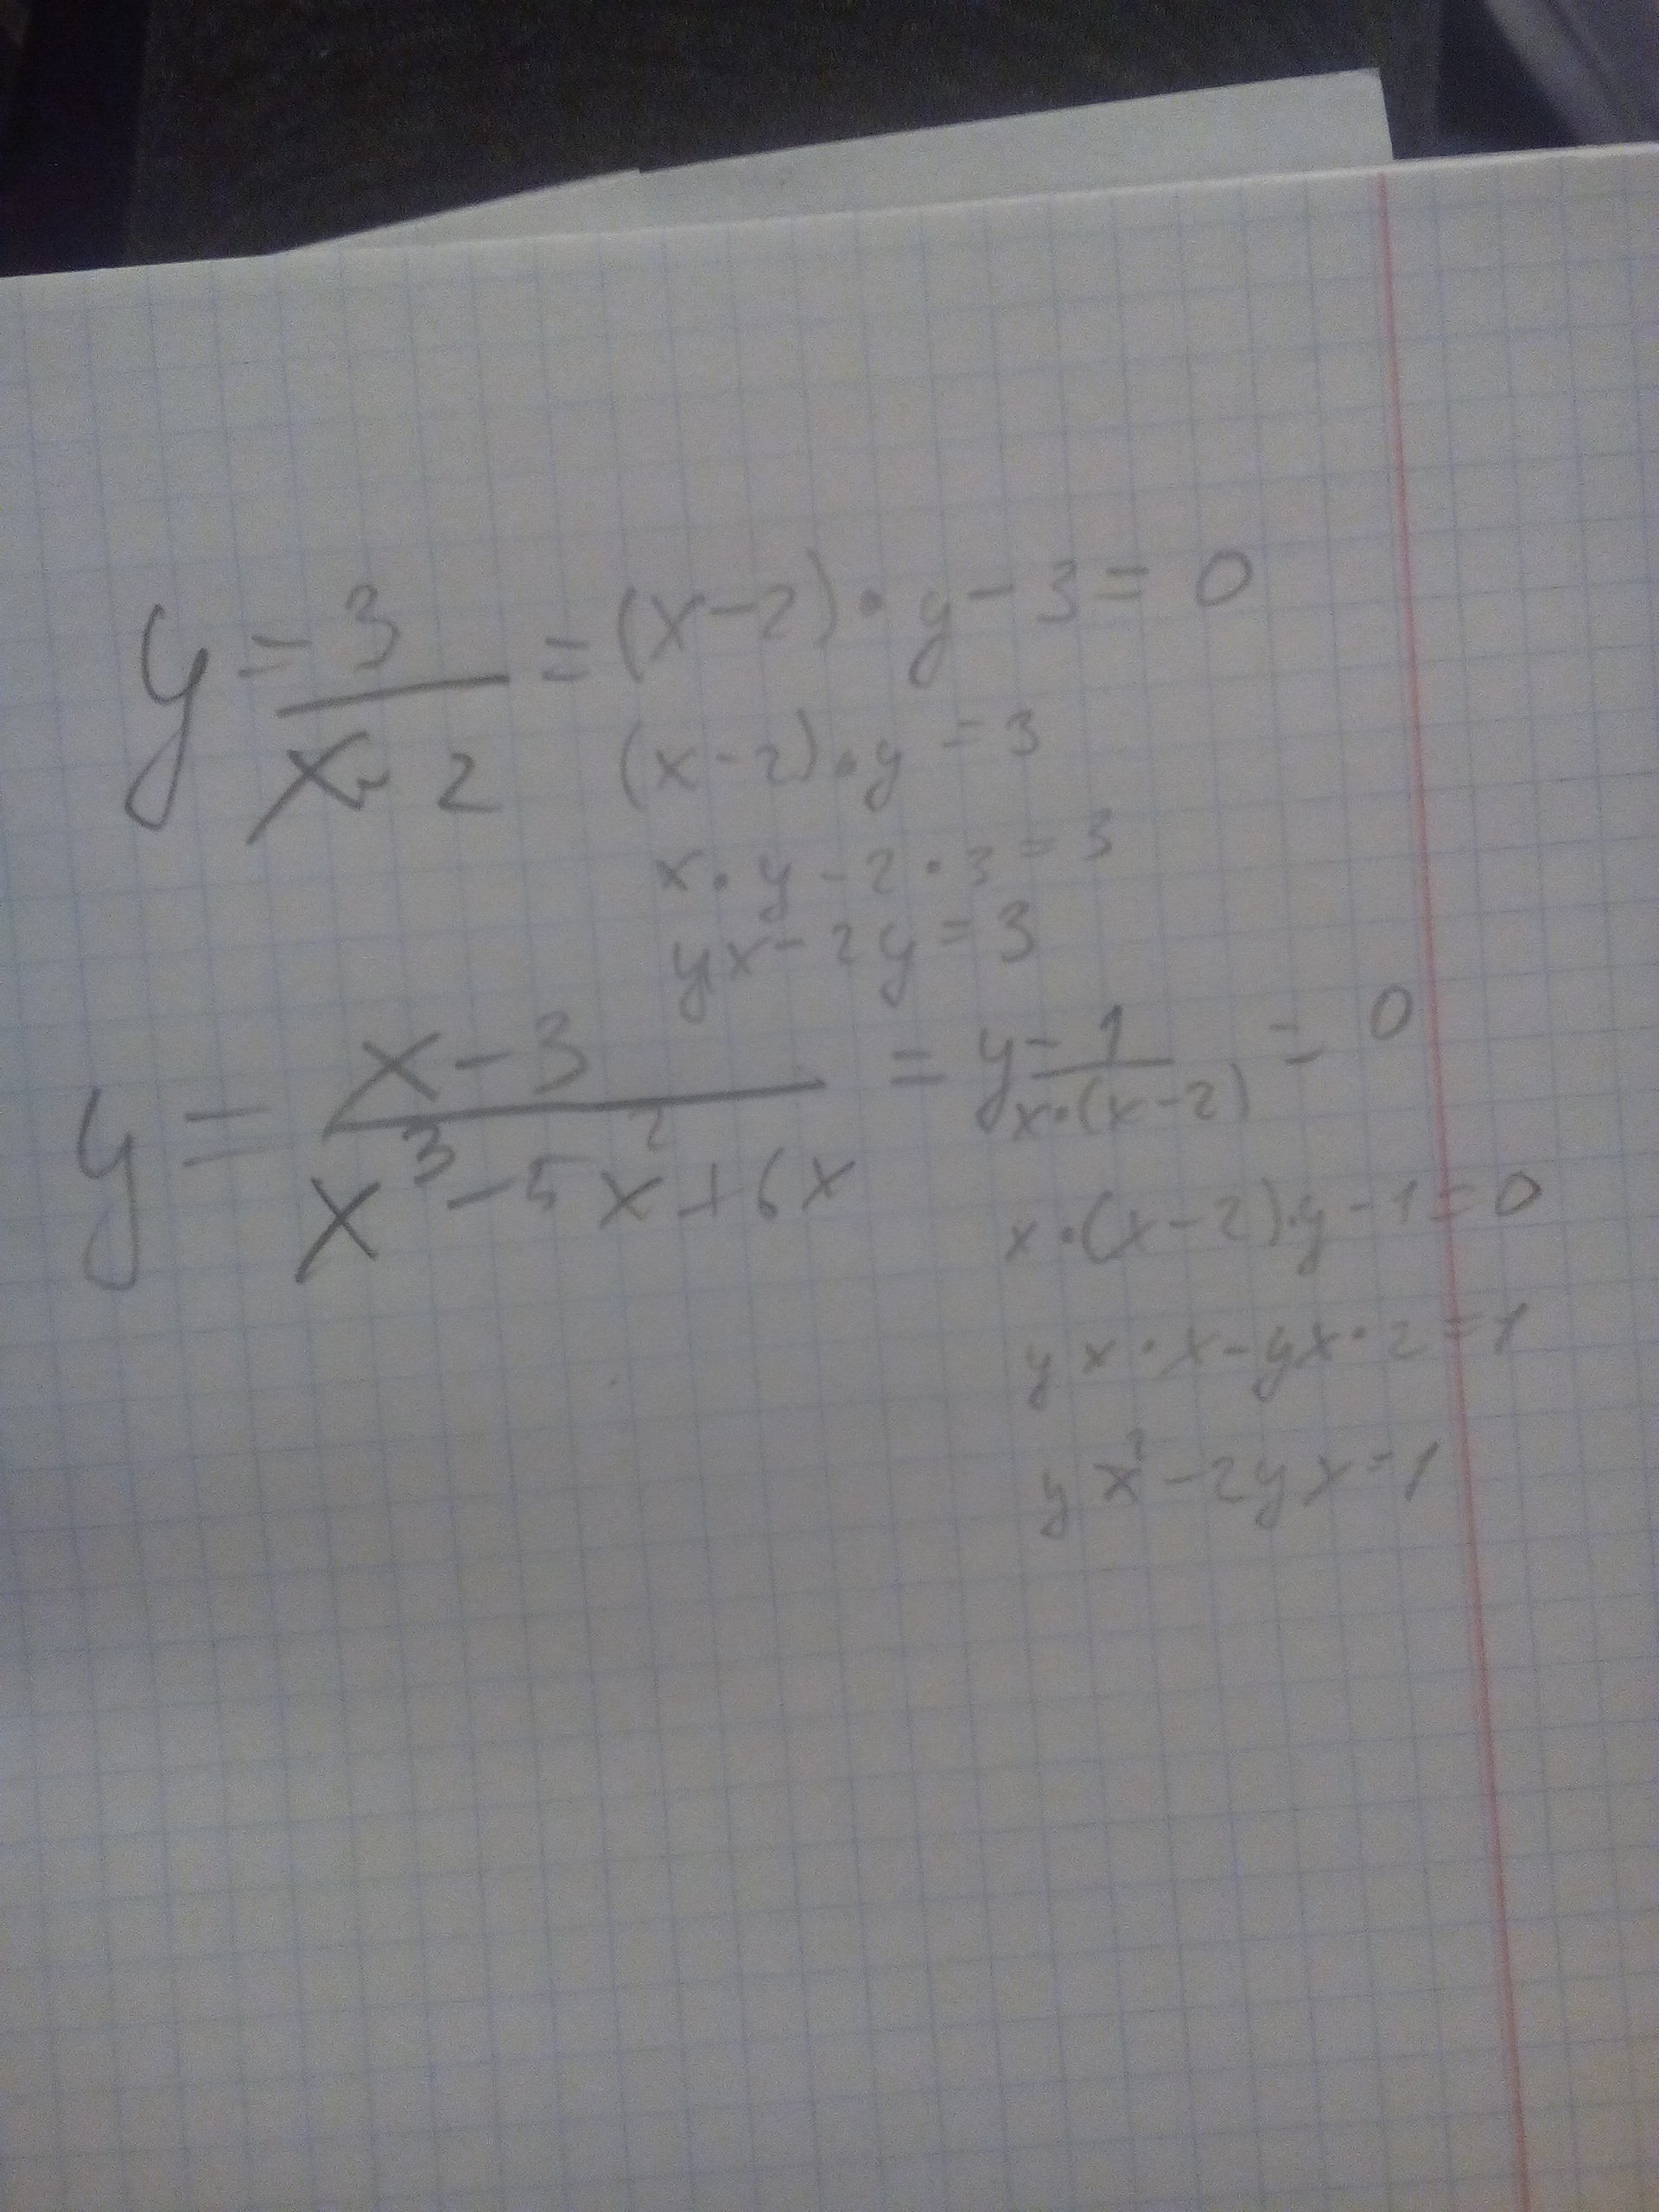 y = 3/(x-2) = (x-2)·y-3=0
(x-2)·y=3
x·y-2·3=3
yx-2y=3
y = (x-3)/(x³-5x²+6x) = y-1/(x·(x-2)) = 0
x·(x-2)·y-1=0
yx·x-yx·2=1
yx²-2yx=1